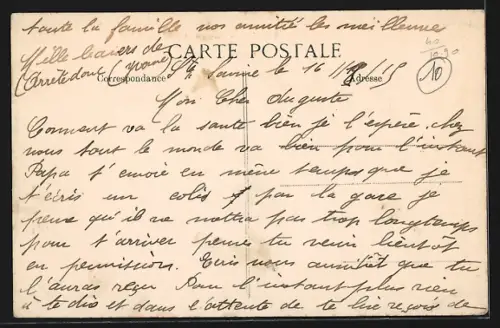 toute la famille nos amitié les meilleures
Mille baisers de
CARTE POSTALE
40
10-90
10
(Arrêtedont (Yvonne)
Correspondance
Adresse
Ste Savine le 16/11/15
Mon Cher Auguste
Comment va la santé bien je l'espère, chez
nous tout le monde va bien pour l'instant
Papa t'envoie en même temps que je
t'écris un colis par la gare je
pense qu'il ne mettra pas trop longtemps
pour t'arriver penses tu venir bientôt
en permissions. Ecris nous aussitôt que tu
l'auras reçu Pour l'instant plus rien
à te dire et dans l'attente de te lire reçois de